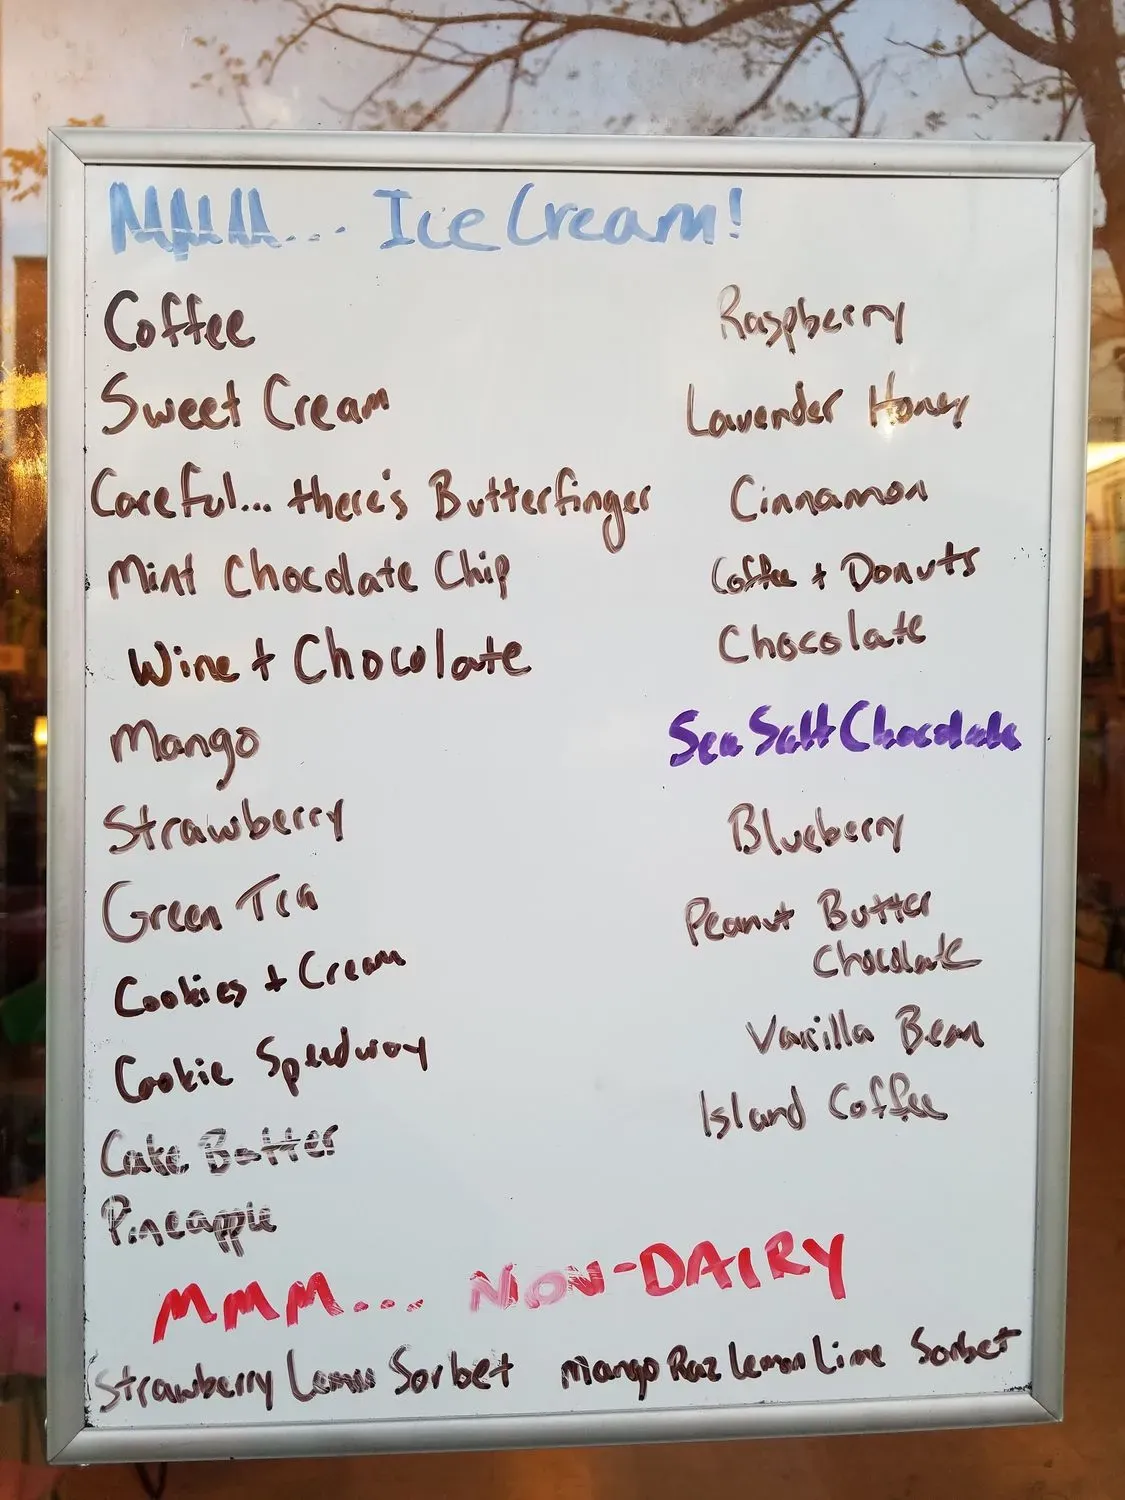 MMM... Ice Cream!
Coffee
Sweet Cream
Careful... there's Butterfinger
Mint Chocolate Chip
Wine + Chocolate
Mango
Strawberry
Green Tea
Cookies + Cream
Cookie Speedway
Cake Batter
Pineapple
Raspberry
Lavender Honey
Cinnamon
Coffee + Donuts
Chocolate
Sea Salt Chocolate
Blueberry
Peanut Butter
Chocolate
Vanilla Bean
Island Coffee
MMM... NON-DAIRY
Strawberry Lemon Sorbet
Mango Raz Lemon Lime Sorbet